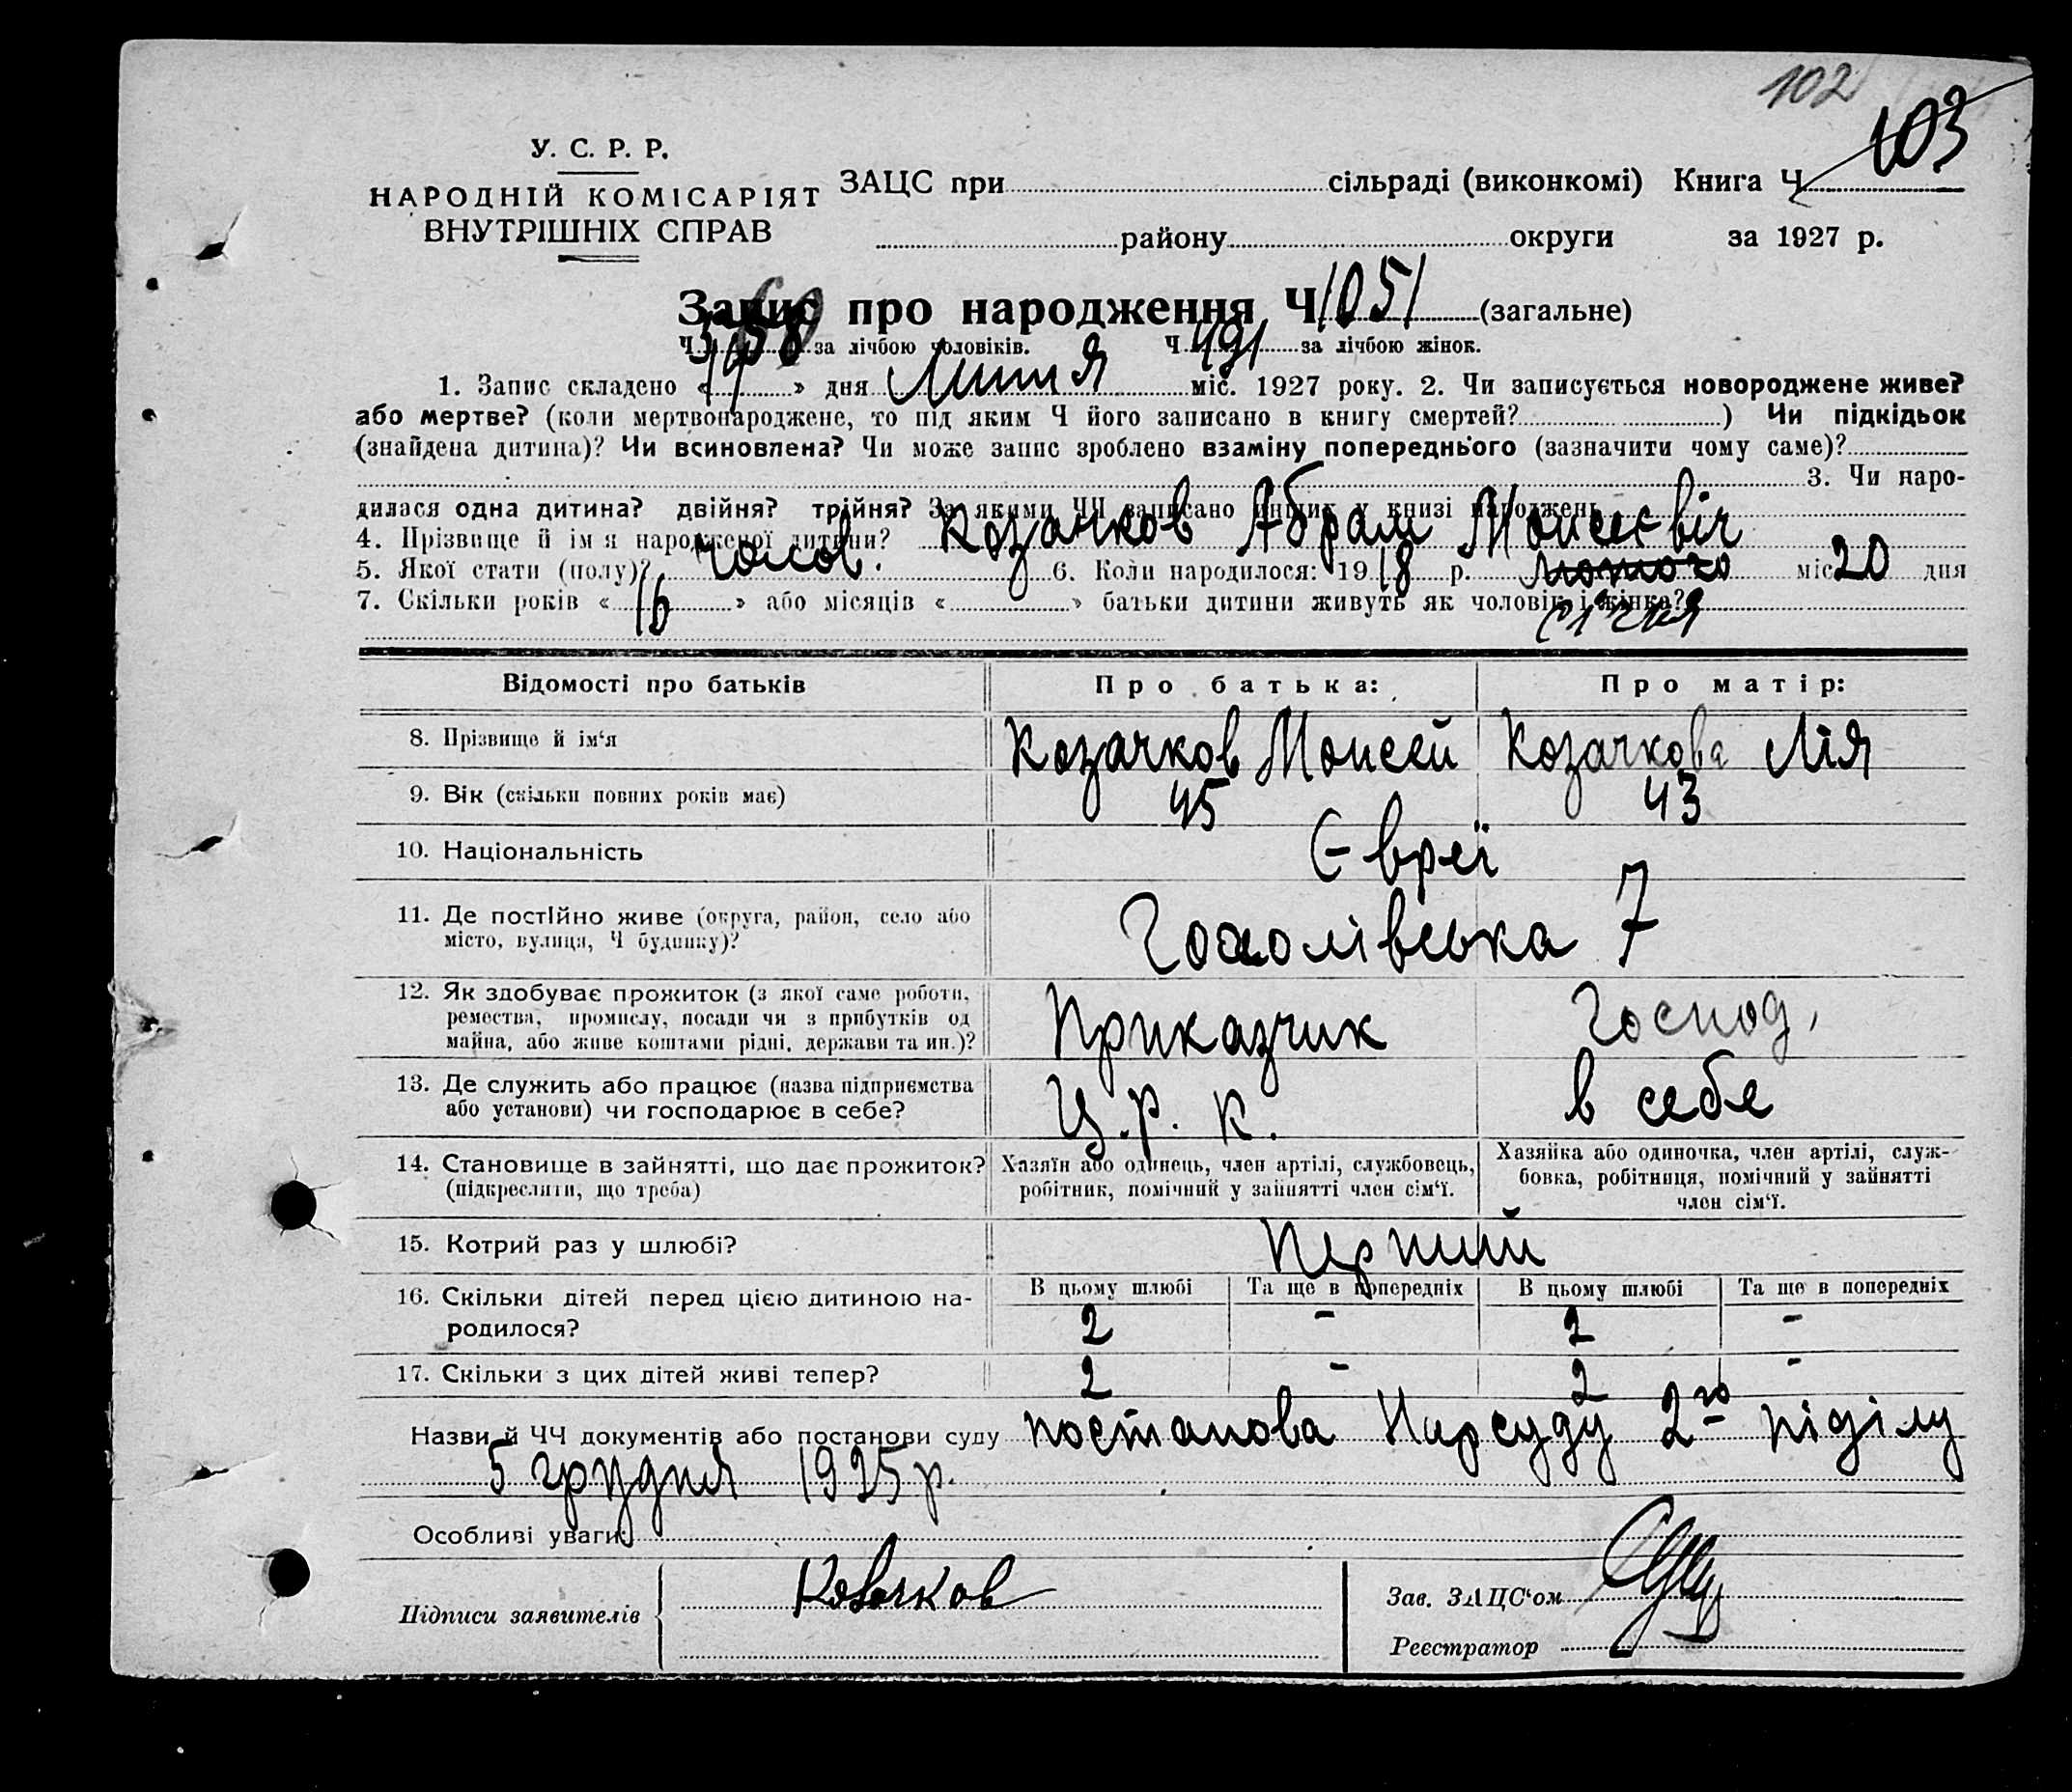 102
103
У. С. Р. Р.
НАРОДНІЙ КОМІСАРІЯТ
ВНУТРІШНІХ СПРАВ
ЗАЦС при сільраді (виконкомі) Книга Ч
району округи за 1927 р.
Запис про народження Ч 1051 (загальне)
Ч за лічбою чоловіків. Ч 491 за лічбою жінок.
1. Запис складено « 14 » дня Липня міс. 1927 року. 2. Чи записується новороджене живе?
або мертве? (коли мертвонароджене, то під яким Ч його записано в книгу смертей? ) Чи підкідьок
(знайдена дитина)? Чи всиновлена? Чи може запис зроблено взаміну попереднього (зазначити чому саме)?
3. Чи наро-
дилася одна дитина? двійня? трійня? За якими ЧЧ записано инших у книзі народжень
4. Прізвище й ім'я народженої дитини? Козачков Абрам Моисеєвіч
5. Якої стати (полу)? чолов. 6. Коли народилося: 1918 р. лютого міс 20 дня
січня
7. Скільки років « 16 » або місяців « » батьки дитини живуть як чоловік і жінка?
Відомості про батьків Про батька: Про матір:
8. Прізвище й ім'я Козачков Моисей Козачкова Лія
9. Вік (скільки повних років має) 45 43
10. Національність Євреї
11. Де постійно живе (округа, район, село або
місто, вулиця, Ч будинку)? 7
12. Як здобуває прожиток (з якої саме роботи,
ремества, промислу, посади чи з прибутків од
майна, або живе коштами рідні, держави та ин.)? Приказчик Господ.
13. Де служить або працює (назва підприємства
або установи) чи господарює в себе? Ц. р. к. в себе
14. Становище в зайнятті, що дає прожиток?
(підкреслити, що треба)
Хазяїн або одинець, член артілі, службовець,
робітник, помічний у зайнятті член сім'ї.
Хазяйка або одиночка, член артілі, служ-
бовка, робітниця, помічний у зайнятті
член сім'ї.
15. Котрий раз у шлюбі? Перший
16. Скільки дітей перед цією дитиною на-
родилося?
В цьому шлюбі Та ще в попередніх В цьому шлюбі Та ще в попередніх
2 - 2 -
17. Скільки з цих дітей живі тепер? 2 - 2 -
Назви й ЧЧ документів або постанови суду постанова Нарсуду 2го
5 грудня 1925 р.
Особливі уваги:
Підписи заявителів Козачков
Зав. ЗАЦС'ом
Реєстратор